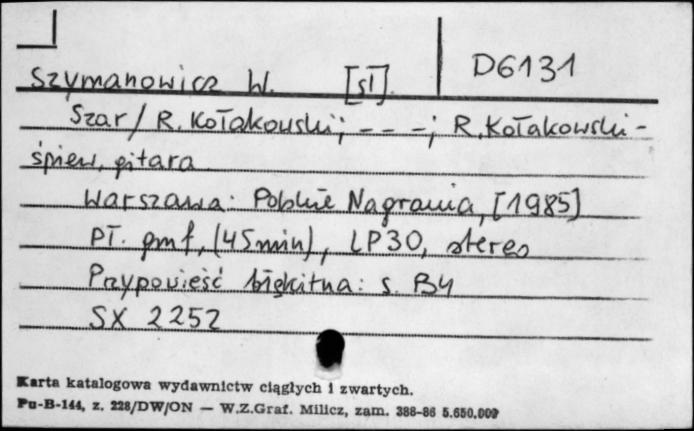 D6131
Szymanowicz W. [sł].
Szar / R. Kołakowski; - - -; R. Kołakowski -
śpiew, gitara
Warszawa: Polskie Nagrania, [1985]
Pł. gmf, (45min), LP30, stereo
Przypowieść błękitna: s. B4
SX 2252
Karta katalogowa wydawnictw ciągłych i zwartych.
Pu-B-144, z. 228/DW/ON — W.Z.Graf. Milicz, zam. 388-86 5.650.000